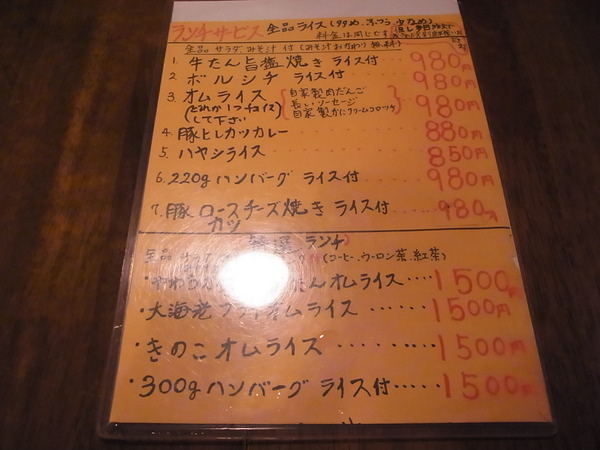 ランチサービス 全品ライス(大盛め、ふつう、少なめ)
料金は同じです
全品 サラダ、みそ汁 付 (みそ汁おかわり 無料)
1. 牛たん旨塩焼き ライス付 ････ 980円
2. ボルシチ ライス付 ････ 980円
3. オムライス 980円
(どれか1つチョイスして下さい)
自家製肉だんご
長いソーセージ
自家製かにクリームコロッケ
4. 豚ヒレカツカレー ････ 880円
5. ハヤシライス ････ 850円
6. 220g ハンバーグ ライス付 ････ 980円
7. 豚ロースチーズ焼き ライス付 ････ 980円
カツ
特選 ランチ
全品 (コーヒー、ウーロン茶、紅茶)
・やわらか たんオムライス････1500円
・大海老フライオムライス････1500円
・きのこオムライス ････1500円
・300g ハンバーグ ライス付････1500円